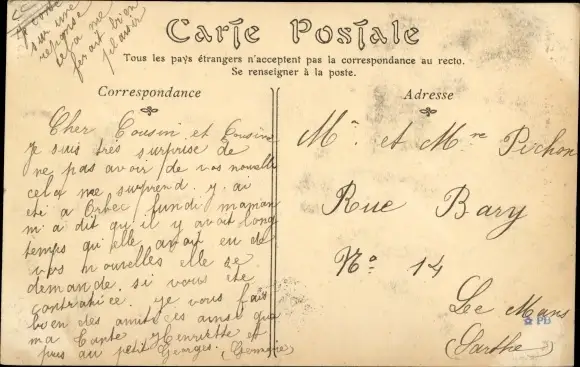 Carte Postale
Tous les pays étrangers n'acceptent pas la correspondance au recto.
Se renseigner à la poste.
Correspondance
Adresse
sur une
reponse
cela me
ferait bien
plaisir
Cher Cousin et Cousine
Je suis très surprise de
ne pas avoir de vos nouvelle
cela me surprend. y ai
eté a Orbec lundi maman
m'a dit qu'il y avait long
temps qu'elle avait eu de
vos nouvelles elle se
demande si vous ete
contrariée. je vous fais
bien des amitiées ainsi que
ma Tante Henriette et
puis au petit Georges. (Germaine)
Mr. et Mme Pichon
Rue Bary
No 14
Le Mans
(Sarthe)
PB